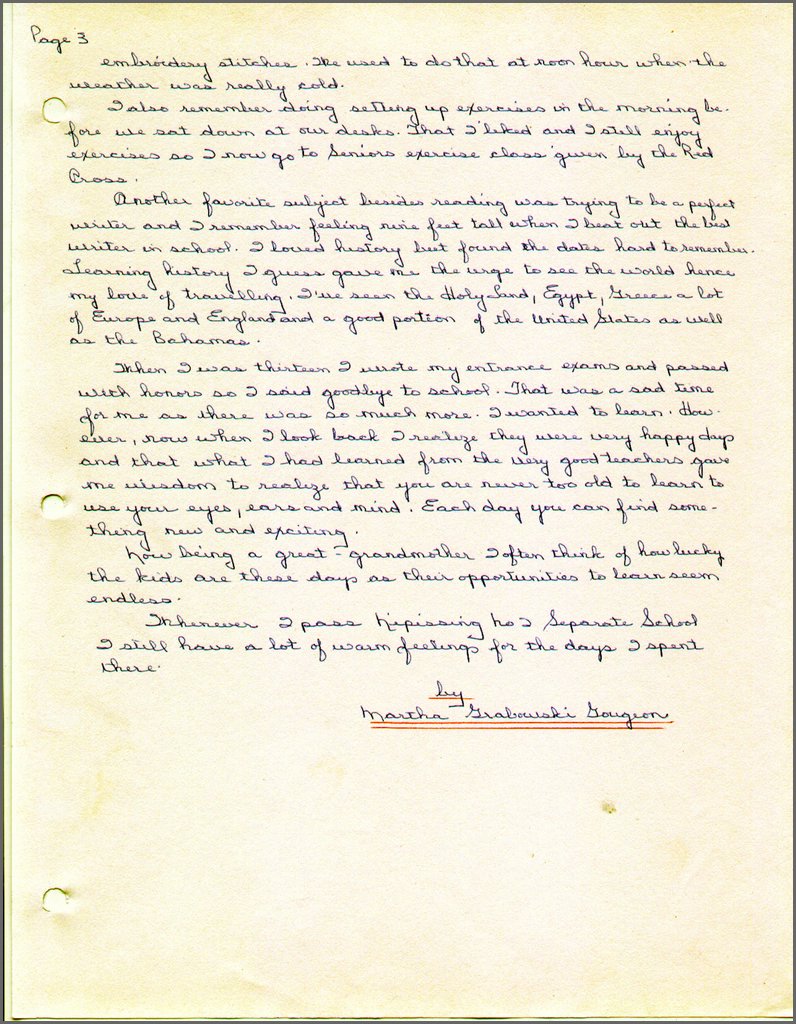 Page 3
embroidery stitches. We used to do that at noon hour when the
weather was really cold.
I also remember doing setting up exercises in the morning be-
fore we sat down at our desks. That I liked and I still enjoy
exercises so I now go to Seniors exercise class given by the Red
Cross.
Another favorite subject besides reading was trying to be a perfect
writer and I remember feeling nine feet tall when I beat out the best
writer in school. I loved history but found the dates hard to remember.
Learning history I guess gave me the urge to see the world hence
my love of travelling. I've seen the Holy Land, Egypt, Greece a lot
of Europe and England and a good portion of the United States as well
as the Bahamas.
When I was thirteen I wrote my entrance exams and passed
with honors so I said goodbye to school. That was a sad time
for me as there was so much more. I wanted to learn. How-
ever, now when I look back I realize they were very happy days
and that what I had learned from the very good teachers gave
me wisdom to realize that you are never too old to learn to
use your eyes, ears and mind. Each day you can find some-
thing new and exciting.
Now being a great-grandmother I often think of how lucky
the kids are these days as their opportunities to learn seem
endless.
Whenever I pass Nipissing No 1 Separate School
I still have a lot of warm feelings for the days I spent
there.
by
Martha Grabowski Gougeon